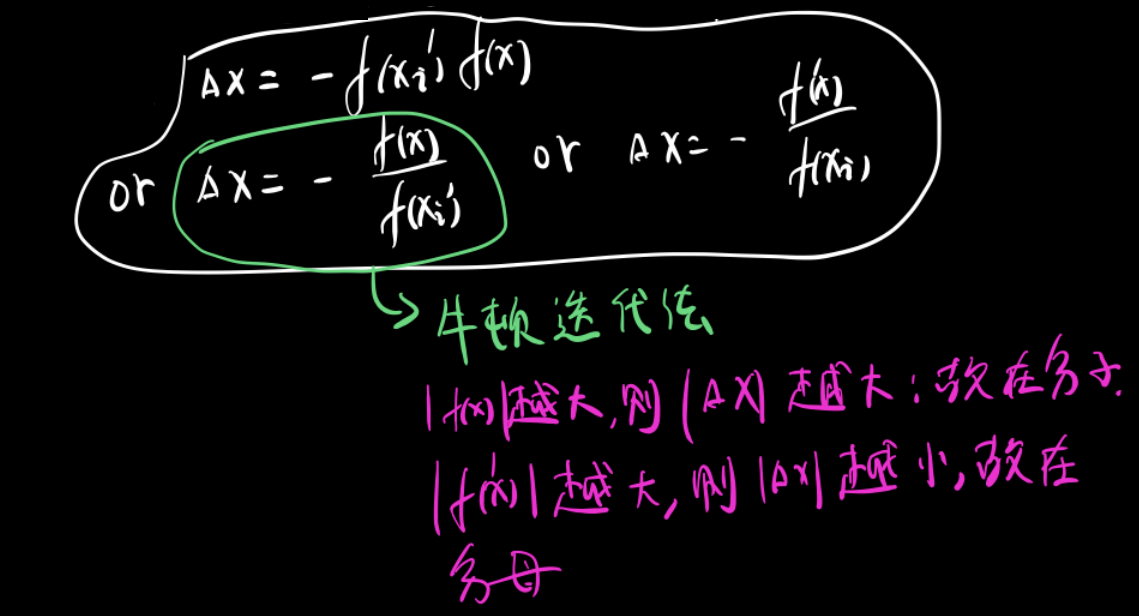 Δx = - f(xi') f(x)
or Δx = - f(x)/f(xi') or Δx = - f'(x)/f(xi)
牛顿迭代法
|f(x)|越大,则|Δx|越大:故在分子.
|f'(x)|越大,则|Δx|越小,故在
分母